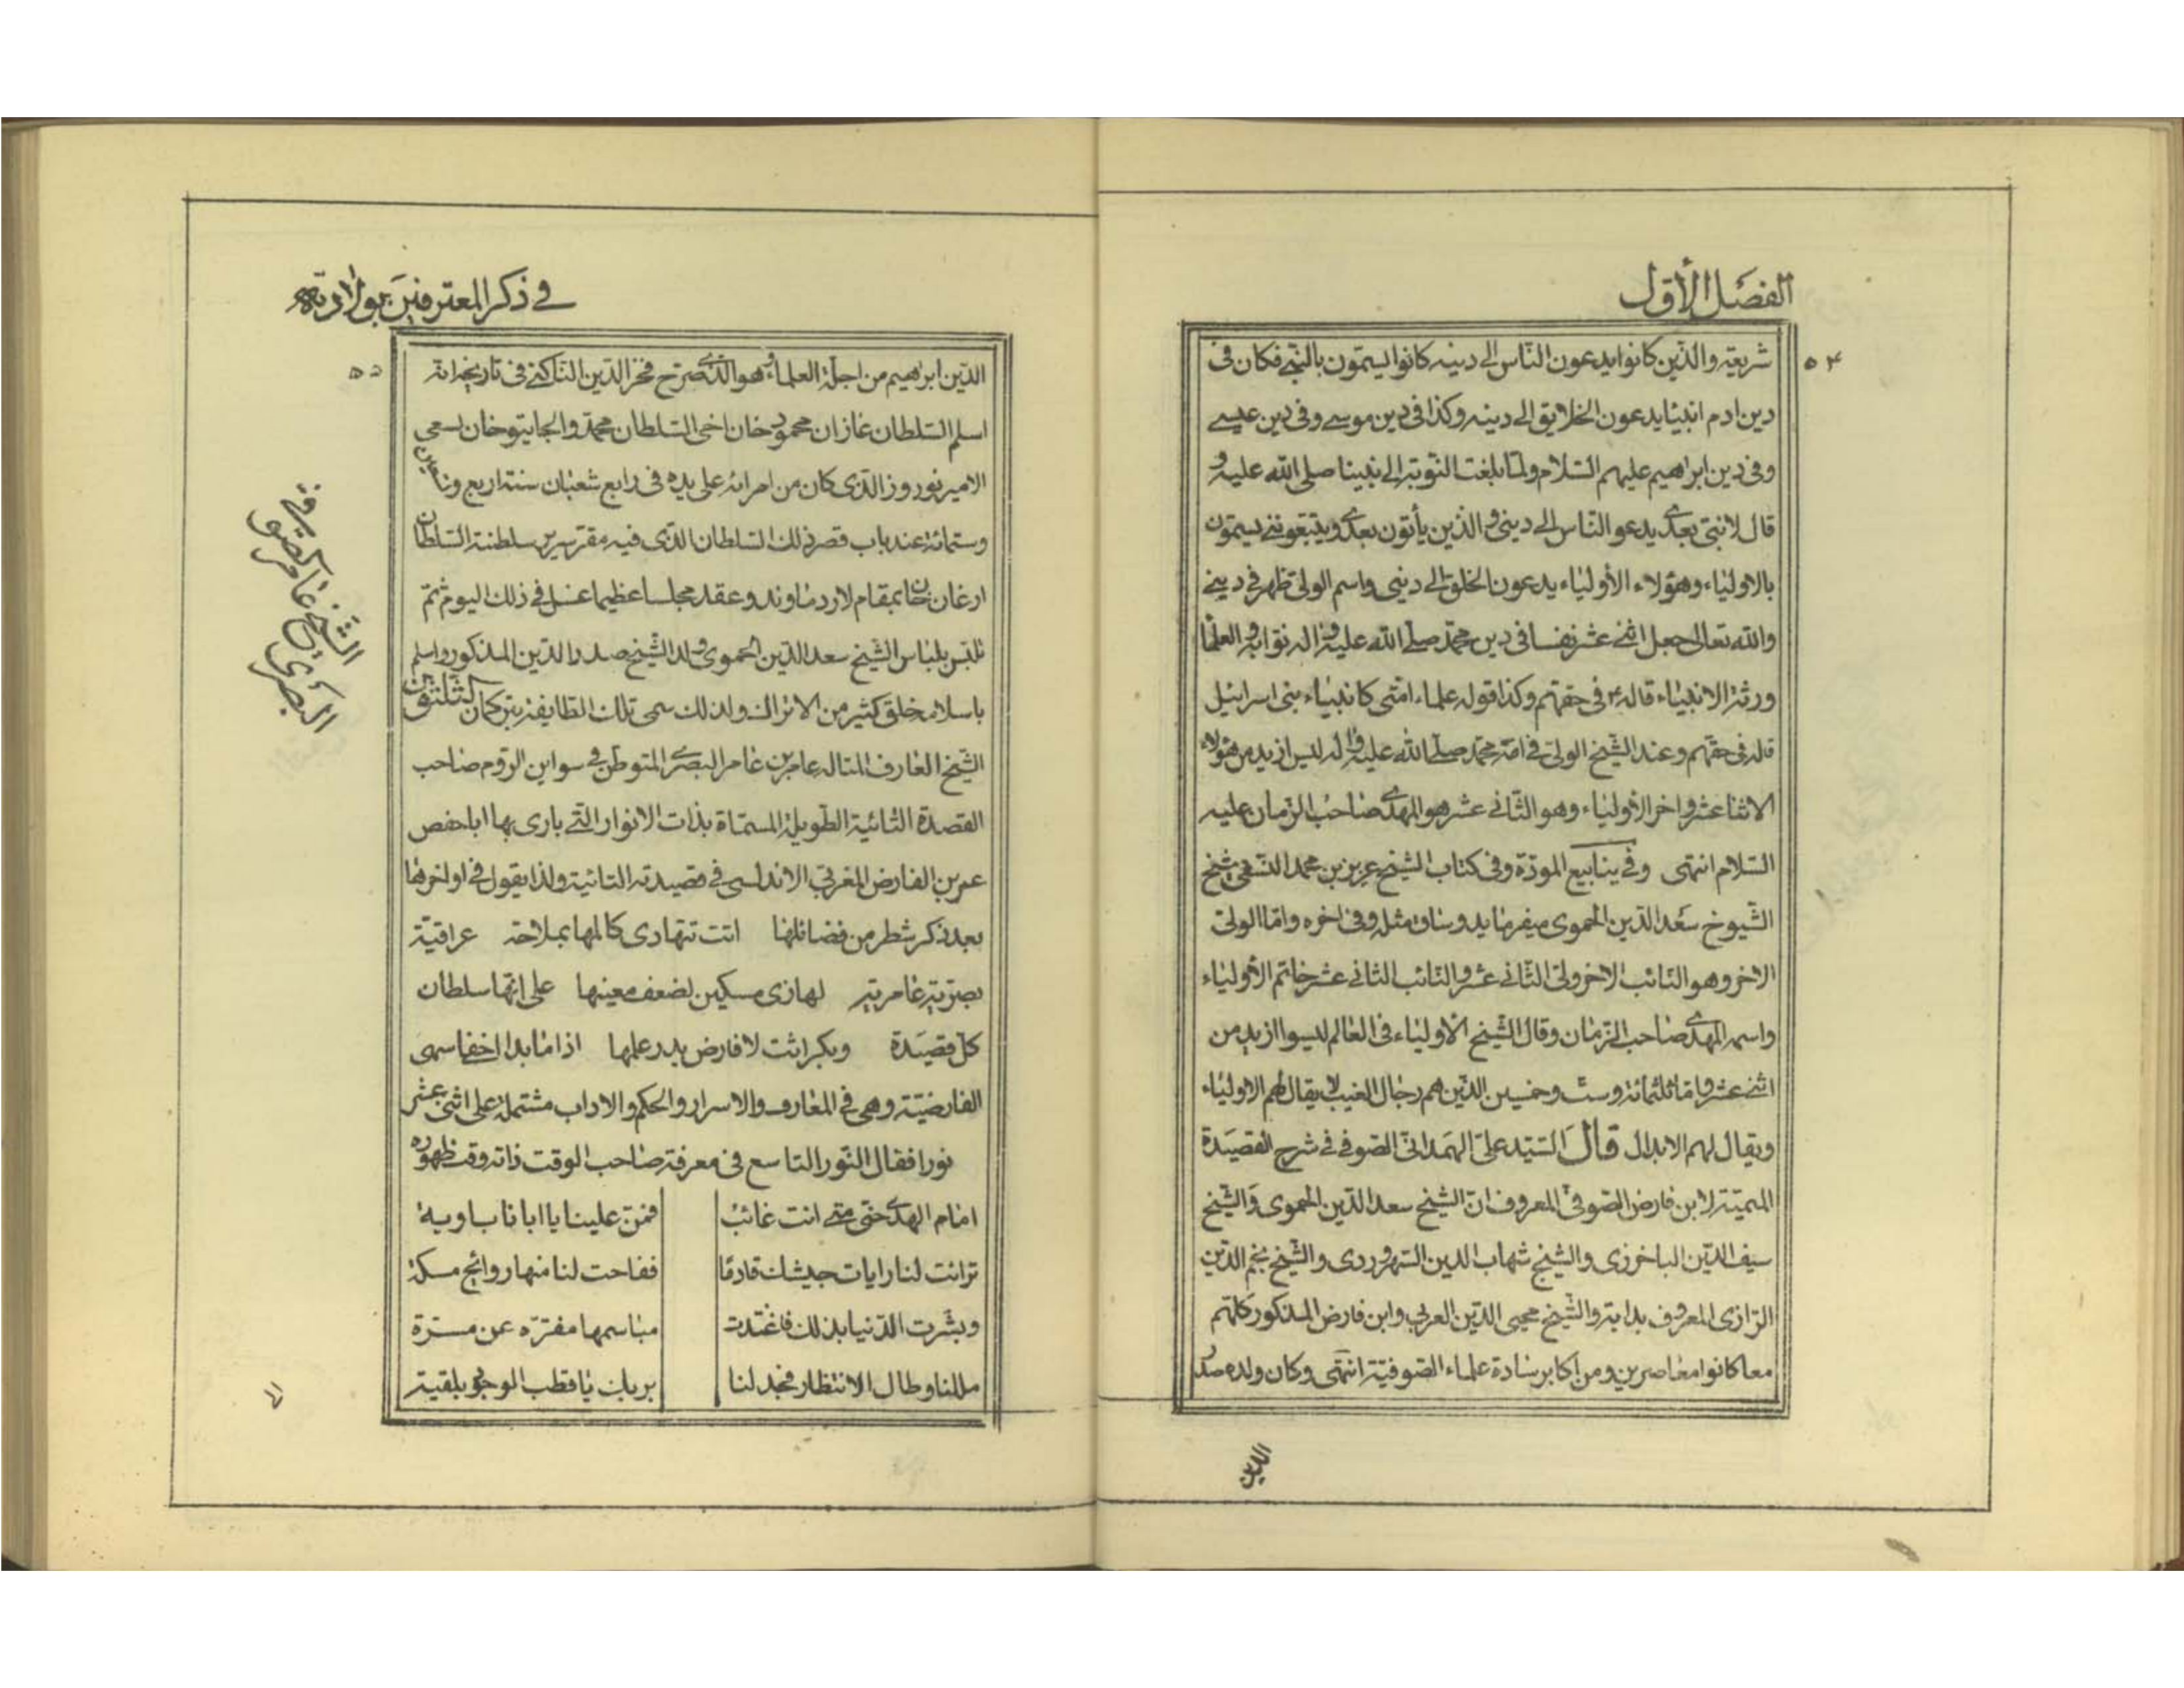 الفصل الأول
٥٤
شريعته والذين كانوا يدعون الناس الى دينه كانوا يسمون بالنبي فكان فى
دين ادم انبيا يدعون الخلايق الى دينه وكذا فى دين موسى وفى دين عيسى
وفى دين ابراهيم عليهم السلام ولما بلغت النوبة الى نبينا صلى الله عليه و
قال لا نبى بعدى يدعو الناس الى دينى والذين يأتون بعدى ويتبعوننى يسمون
بالاولياء وهؤلاء الأولياء يدعون الخلق الى دينى واسم الولى ظهر فى دينى
والله تعالى جعل اثنى عشر نفسا فى دين محمد صلى الله عليه واله نوابه والعلما
ورثة الانبياء قاله فى حقهم وكذا قوله علماء امتى كانبياء بنى اسرائيل
قاله فى حقهم وعند الشيخ الولى فى امة محمد صلى الله عليه واله ليس ازيد من هؤلاء
الاثنا عشر واخر الأولياء وهو الثانى عشر هو المهدى صاحب الزمان عليه
السلام انتهى وفى ينابيع المودة وفى كتاب الشيخ عزيز بن محمد النسفى شيخ
الشيوخ سعد الدين الحموى ميفرمايد وساق مثله وفى اخره واما الولى
الاخر وهو النائب الاخر ولى الثانى عشر والنائب الثانى عشر خاتم الأولياء
واسمه المهدى صاحب الزمان وقال الشيخ الاولياء فى العالم ليسوا ازيد من
اثنى عشر واما ثلثمائة وست وخمسين الذين هم رجال الغيب لا يقال لهم الاولياء
ويقال لهم الابدال قال السيد على الهمدانى الصوفى فى شرح القصيدة
الميمية لابن فارض الصوفى المعروف ان الشيخ سعد الدين الحموى والشيخ
سيف الدين الباخرزى والشيخ شهاب الدين السهروردى والشيخ نجم الدين
الرازى المعروف بداية والشيخ محيى الدين العربى وابن فارض المذكور كلهم
معا كانوا معاصرين ومن اكابر سادة علماء الصوفية انتهى وكان ولده صدر
الدين
فى ذكر المعترفين بولادته
٥٥
الدين ابراهيم من اجلة العلماء وهو الذى صرح فخر الدين البناكتى فى تاريخه انه
اسلم السلطان غازان محمود خان اخى السلطان محمد والجايتو خان بسعى
الامير نوروز الذى كان من امرائه على يده فى رابع شعبان سنة اربع وتسعين
وستمائة عند باب قصر ذلك السلطان الذى فيه مقر سرير سلطنة السلطان
ارغان خان بمقام لار دماوند وعقد مجلسا عظيما غسل فى ذلك اليوم ثم
تلبس بلباس الشيخ سعد الدين الحموى ولد الشيخ صدر الدين المذكور واسلم
باسلامه خلق كثير من الاتراك ولذلك سمى تلك الطايفة بتركمان الثلثون
الشيخ العارف المتاله عامر بن عامر البصرى المتوطن فى سواس الروم صاحب
القصيدة التائية الطويلة المسماة بذات الانوار التى بارى بها ابا حفص
عمر بن الفارض المغربى الاندلسى فى قصيدته التائية ولذا يقول فى اواخرها
بعد ذكر شطر من فضائلها اتت تتهادى كالمها بملاحة عراقية
بصرية عامرية لها زى مسكين لضعف معينها على انها سلطان
كل قصيدة وبكر اتت لا فارض يدر علمها اذا ما بدا اخفا سمى
الفارضية وهى فى المعارف والاسرار والحكم والاداب مشتملة على اثنى عشر
نورا فقال النور التاسع فى معرفة صاحب الوقت ذاته وقت ظهوره
امام الهدى حتى متى انت غائب فمن علينا يا ابانا باوبة
ترائت لنا رايات جيشك قادما ففاحت لنا منها روائح مسكة
وبشرت الدنيا بذلك فاغتدت مباسمها مفترة عن مسرة
مللنا وطال الانتظار فجد لنا بربك يا قطب الوجود بلقية
الشيخ عامر
البصرى